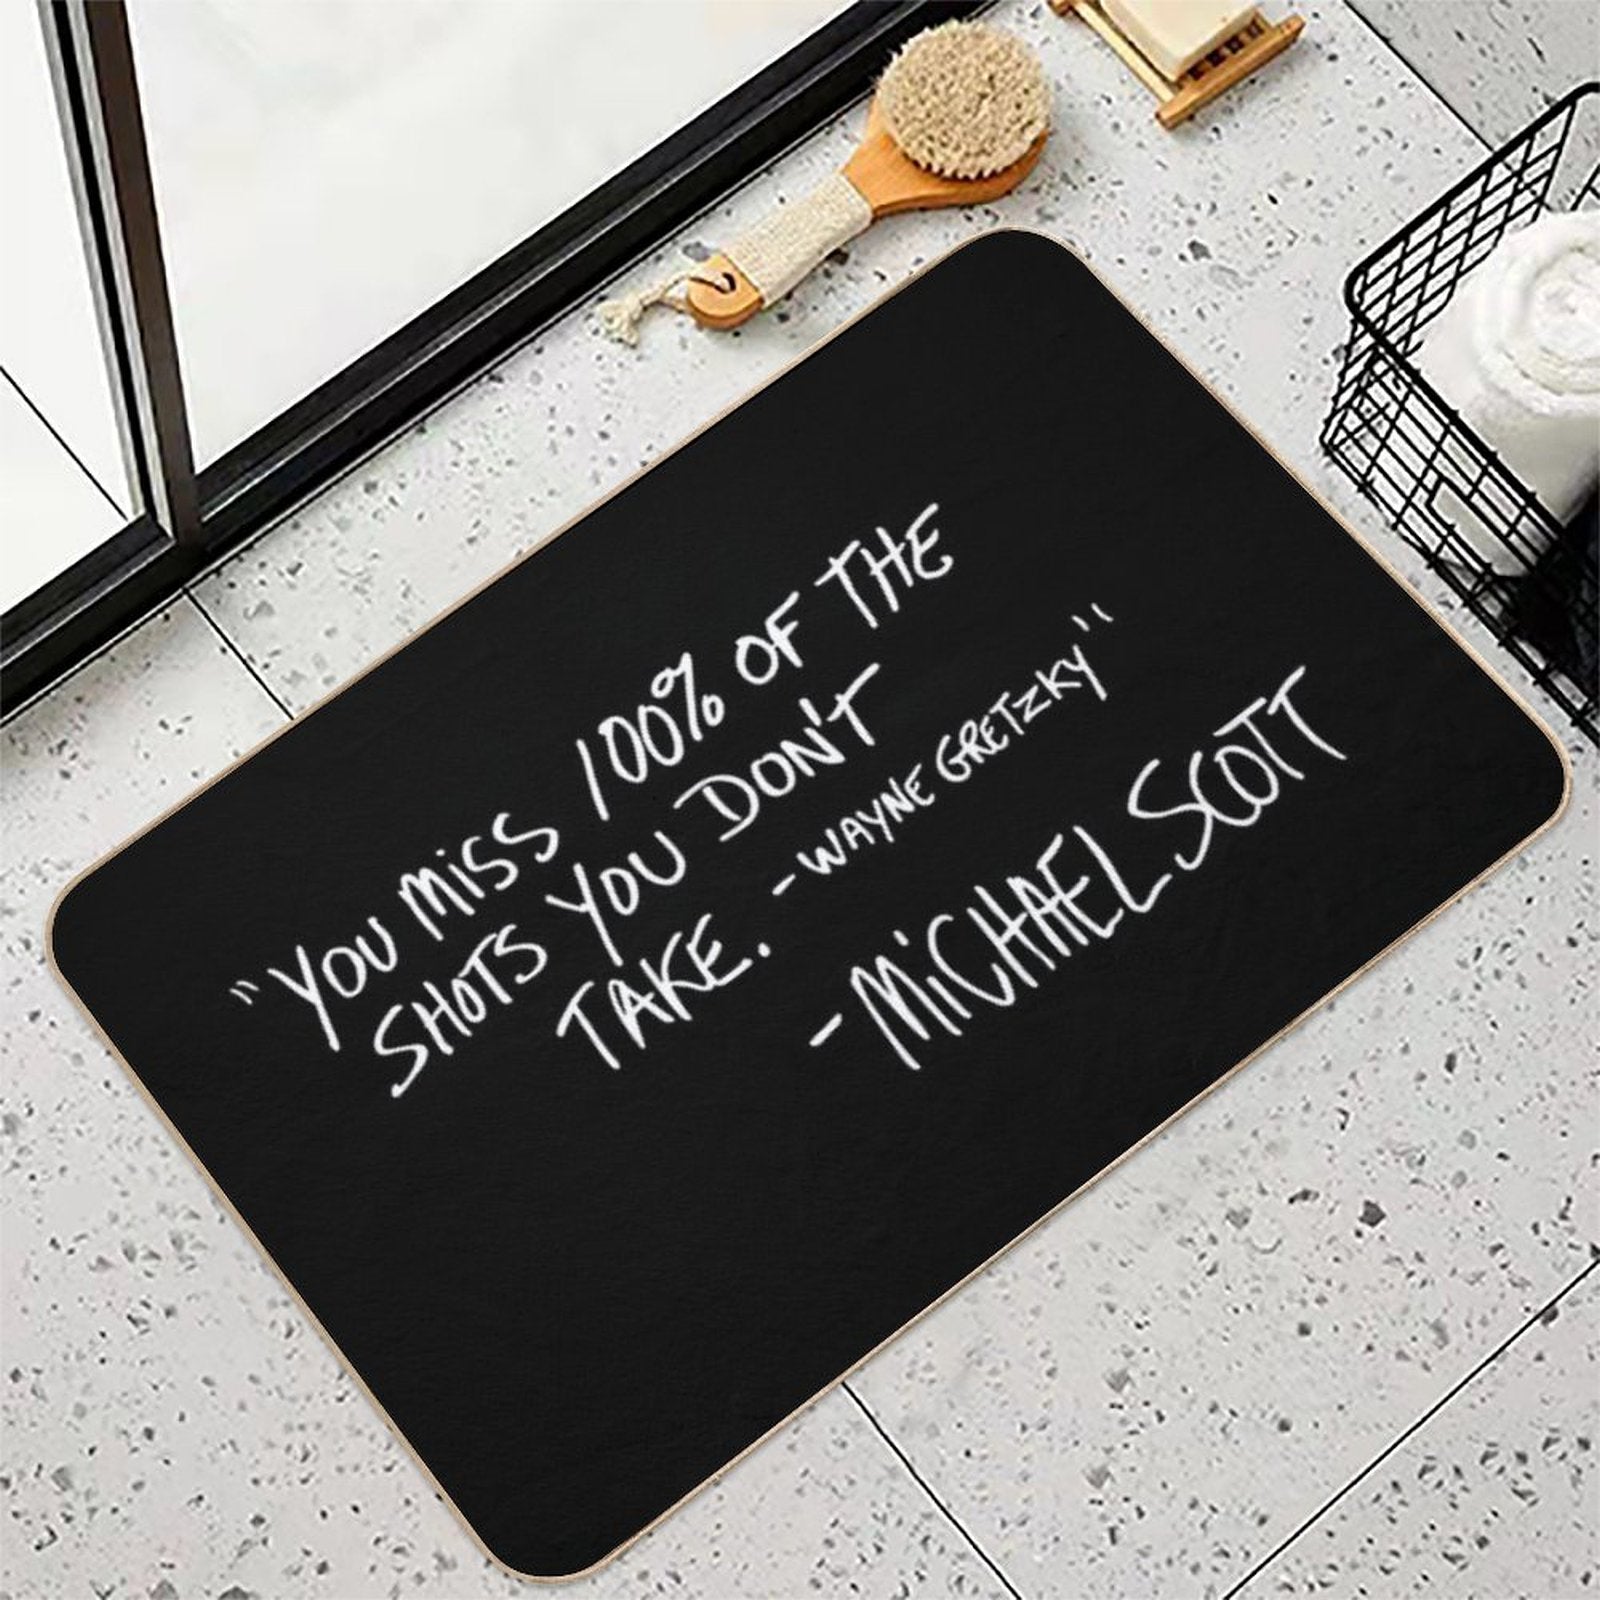 "YOU MiSS 100% OF THE
SHOTS YOU DON'T
TAKE. -WAYNE GRETZKY"
-MiCHAEL SCOTT